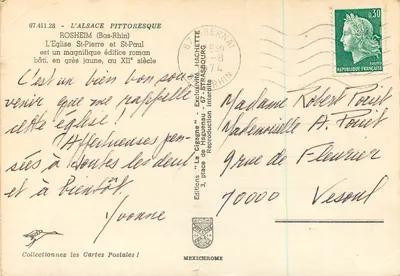 67.411.28 - L'ALSACE PITTORESQUE
ROSHEIM (Bas-Rhin)
L'Eglise St-Pierre et St-Paul
est un magnifique édifice roman
bâti, en grès jaune, au XIIe siècle
C'est un bien bon sou-
venir que me rappelle
cette église !
Affectueuses pen-
sées à toutes les deux
et à bientôt,
Yvonne
Collectionnez les Cartes Postales !
Editions "La Cigogne" - Exclusivité HACHETTE
3, place de Haguenau - 67-STRASBOURG
Reproduction interdite
MEXICHROME
67 OBERNAI
1974
RHIN
0,30
REPUBLIQUE FRANÇAISE
Madame Robert
Mademoiselle A.
9 rue de Fleurier
70000 Vesoul